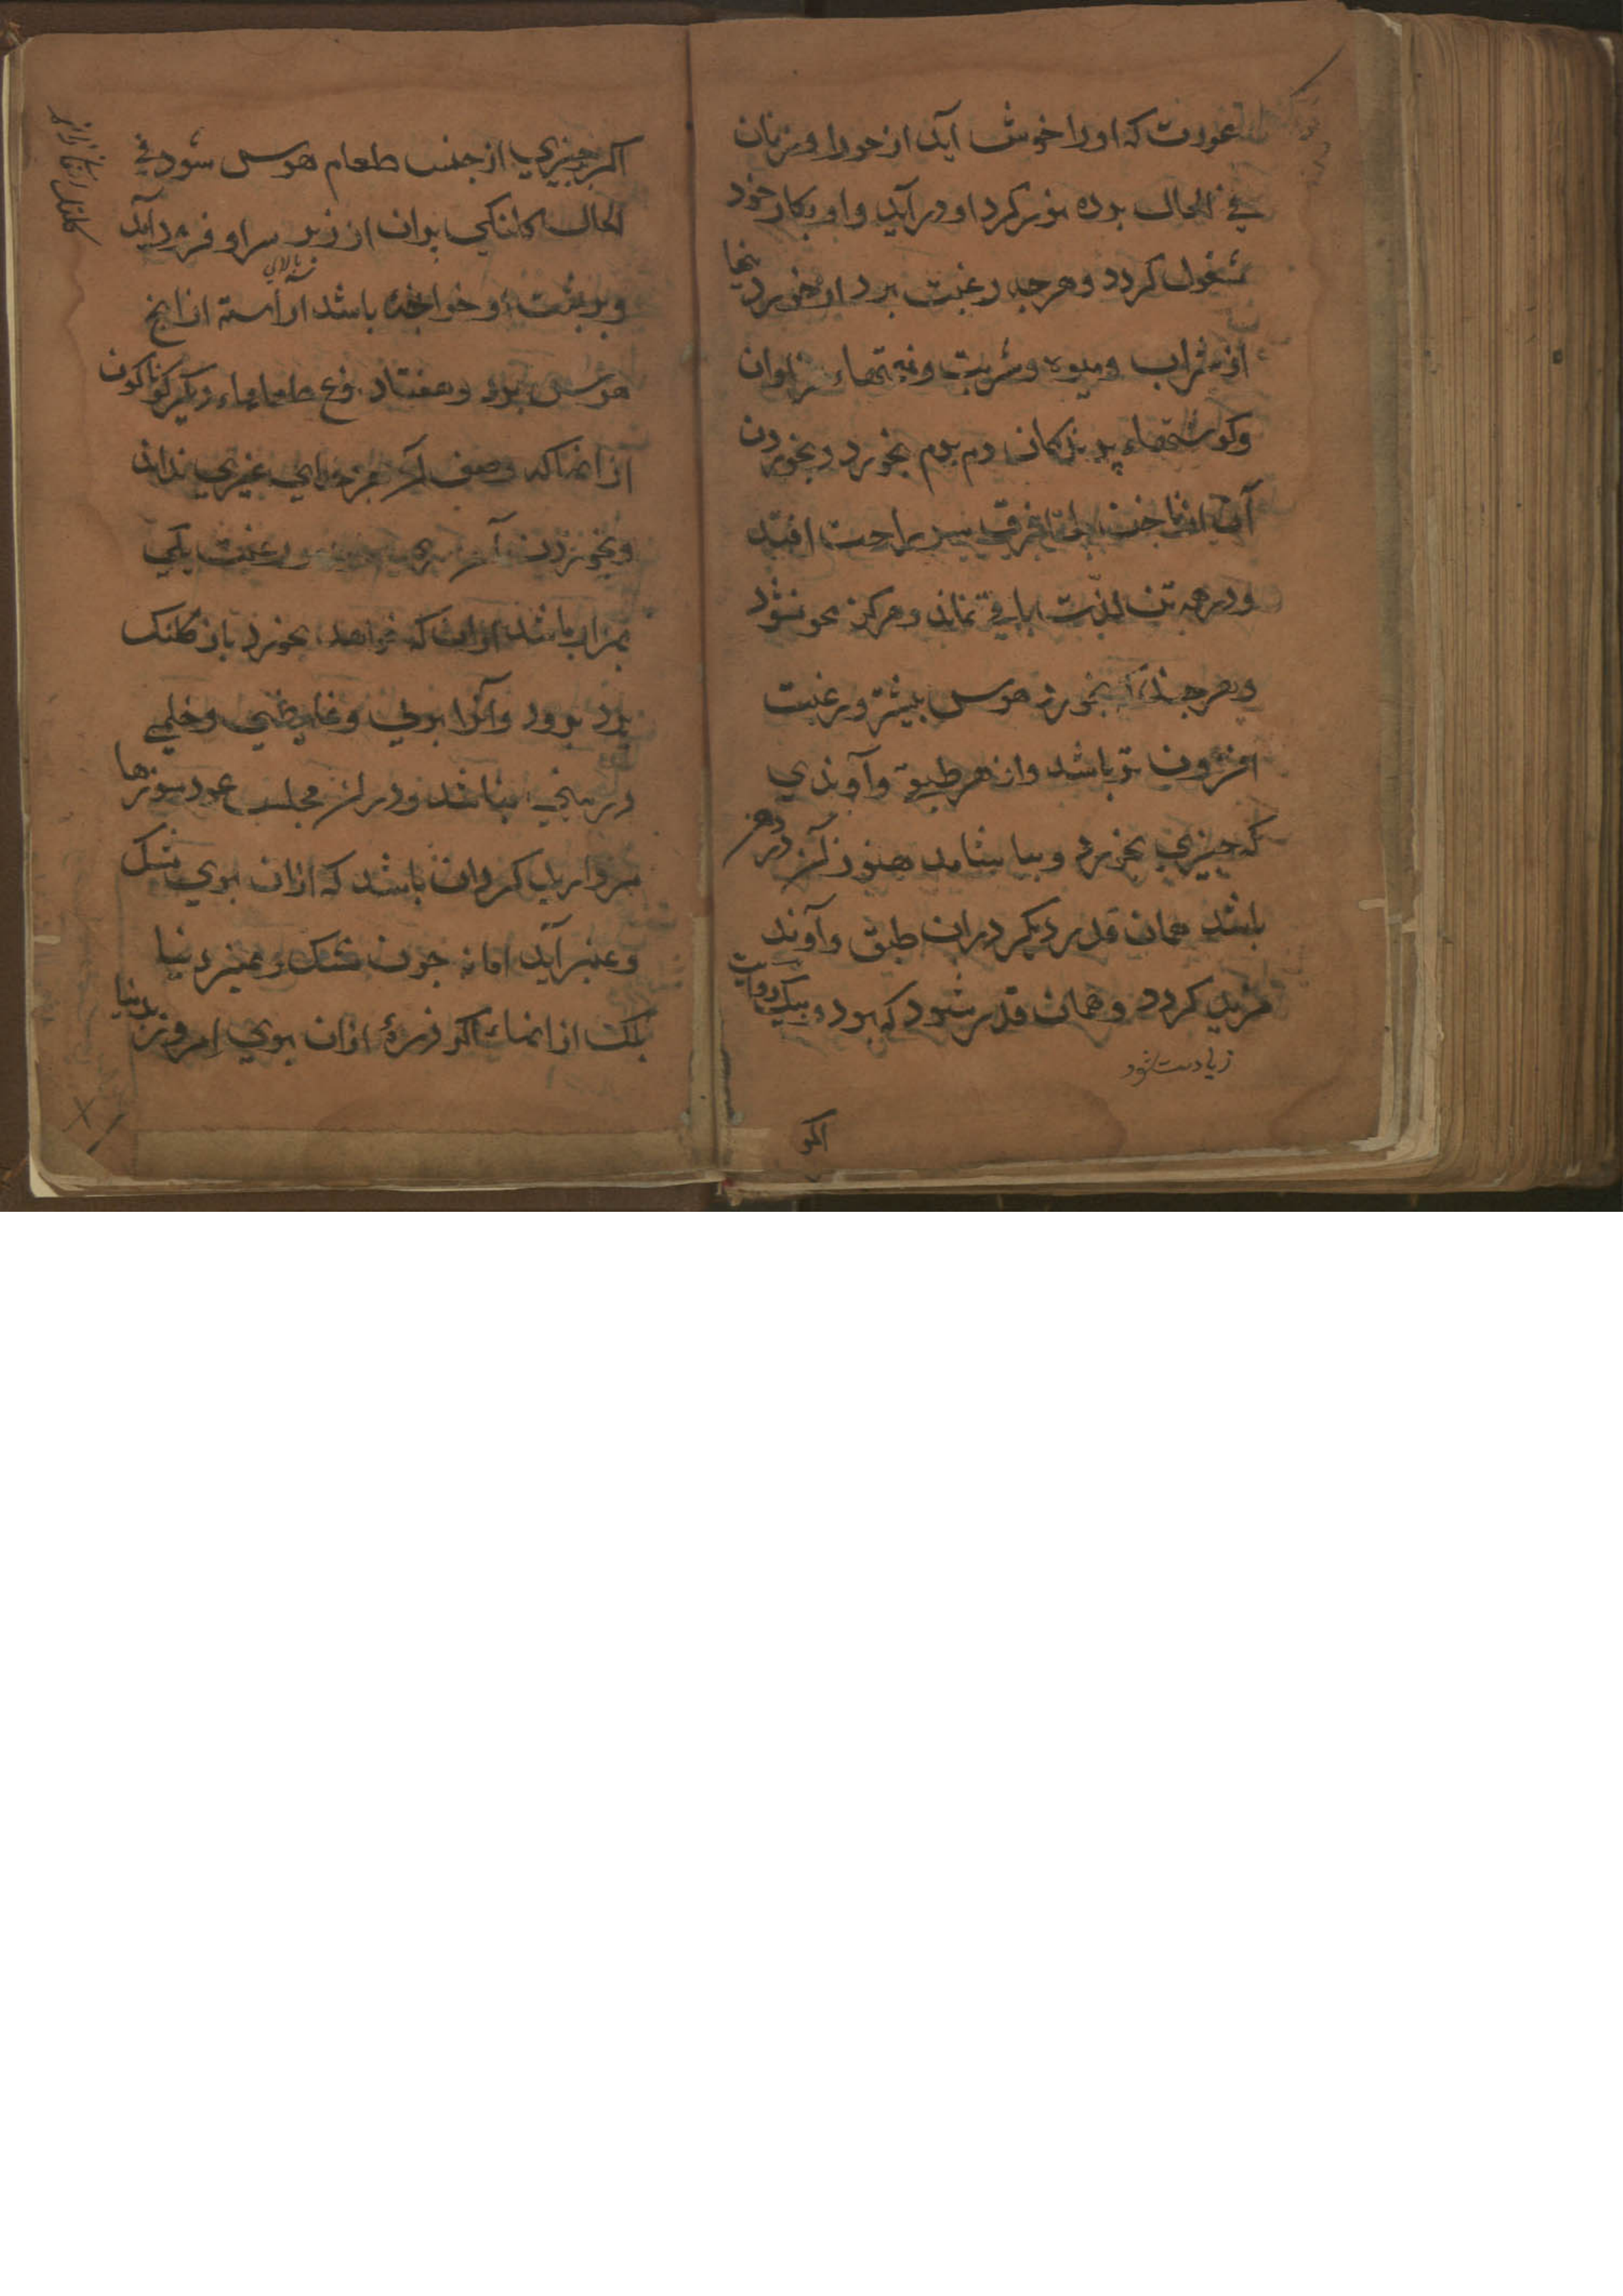 عورت که اورا خوش آید از حورا و زنان
في الحال برده نور کرد او درآید و او بکار خود
مشغول کردد و هرچه رغبت برد از خوردنیها
از شراب و میوه و شربت و نعمتهاء فراوان
وکوشتهاء پرندکان دم بدم بخورد و بخوردن
آن از ناخن پا تا فرق سر براحت افتد
و در همه تن لذت باقي ماند و هرکز محو نشود
و هرچند بخورد هوس بیشتر و رغبت
افزون تر باشد و از هر طبق و آوندي
که چیزي بخورد و بیاشامد هنوز آن در دهن
باشد همان قدر دیکر دران طبق و آوند
مزید کردد و همان قدر شود که بود و بیک روایت
زیادت شود
اکر
اکر چیزي از جنس طعام هوس شود في
الحال کلنکي بران از زبر سر او فرود آید
و بر پشت او خوانچه باشد آراسته از انج
بالاي
هوس بود و هفتاد نوع طعامهاء دیکر کوناکون
از انها که وصف آن جز خداي غیري نداند
و بخوردن رغبت یکي
باشد ازان که خواهد بخورد باز کلنک
برد برود و آنرا بولي و غایطي و خلمي
و رنجي نباشد و در آن مجلس عودسوزها
مروارید کردان باشد که ازان بوي مشک
و عنبر آید اما نه چون مشک و عنبر دنیا
بلک از انها که اکر ذرۀ ازان بوي امروز بدنیا